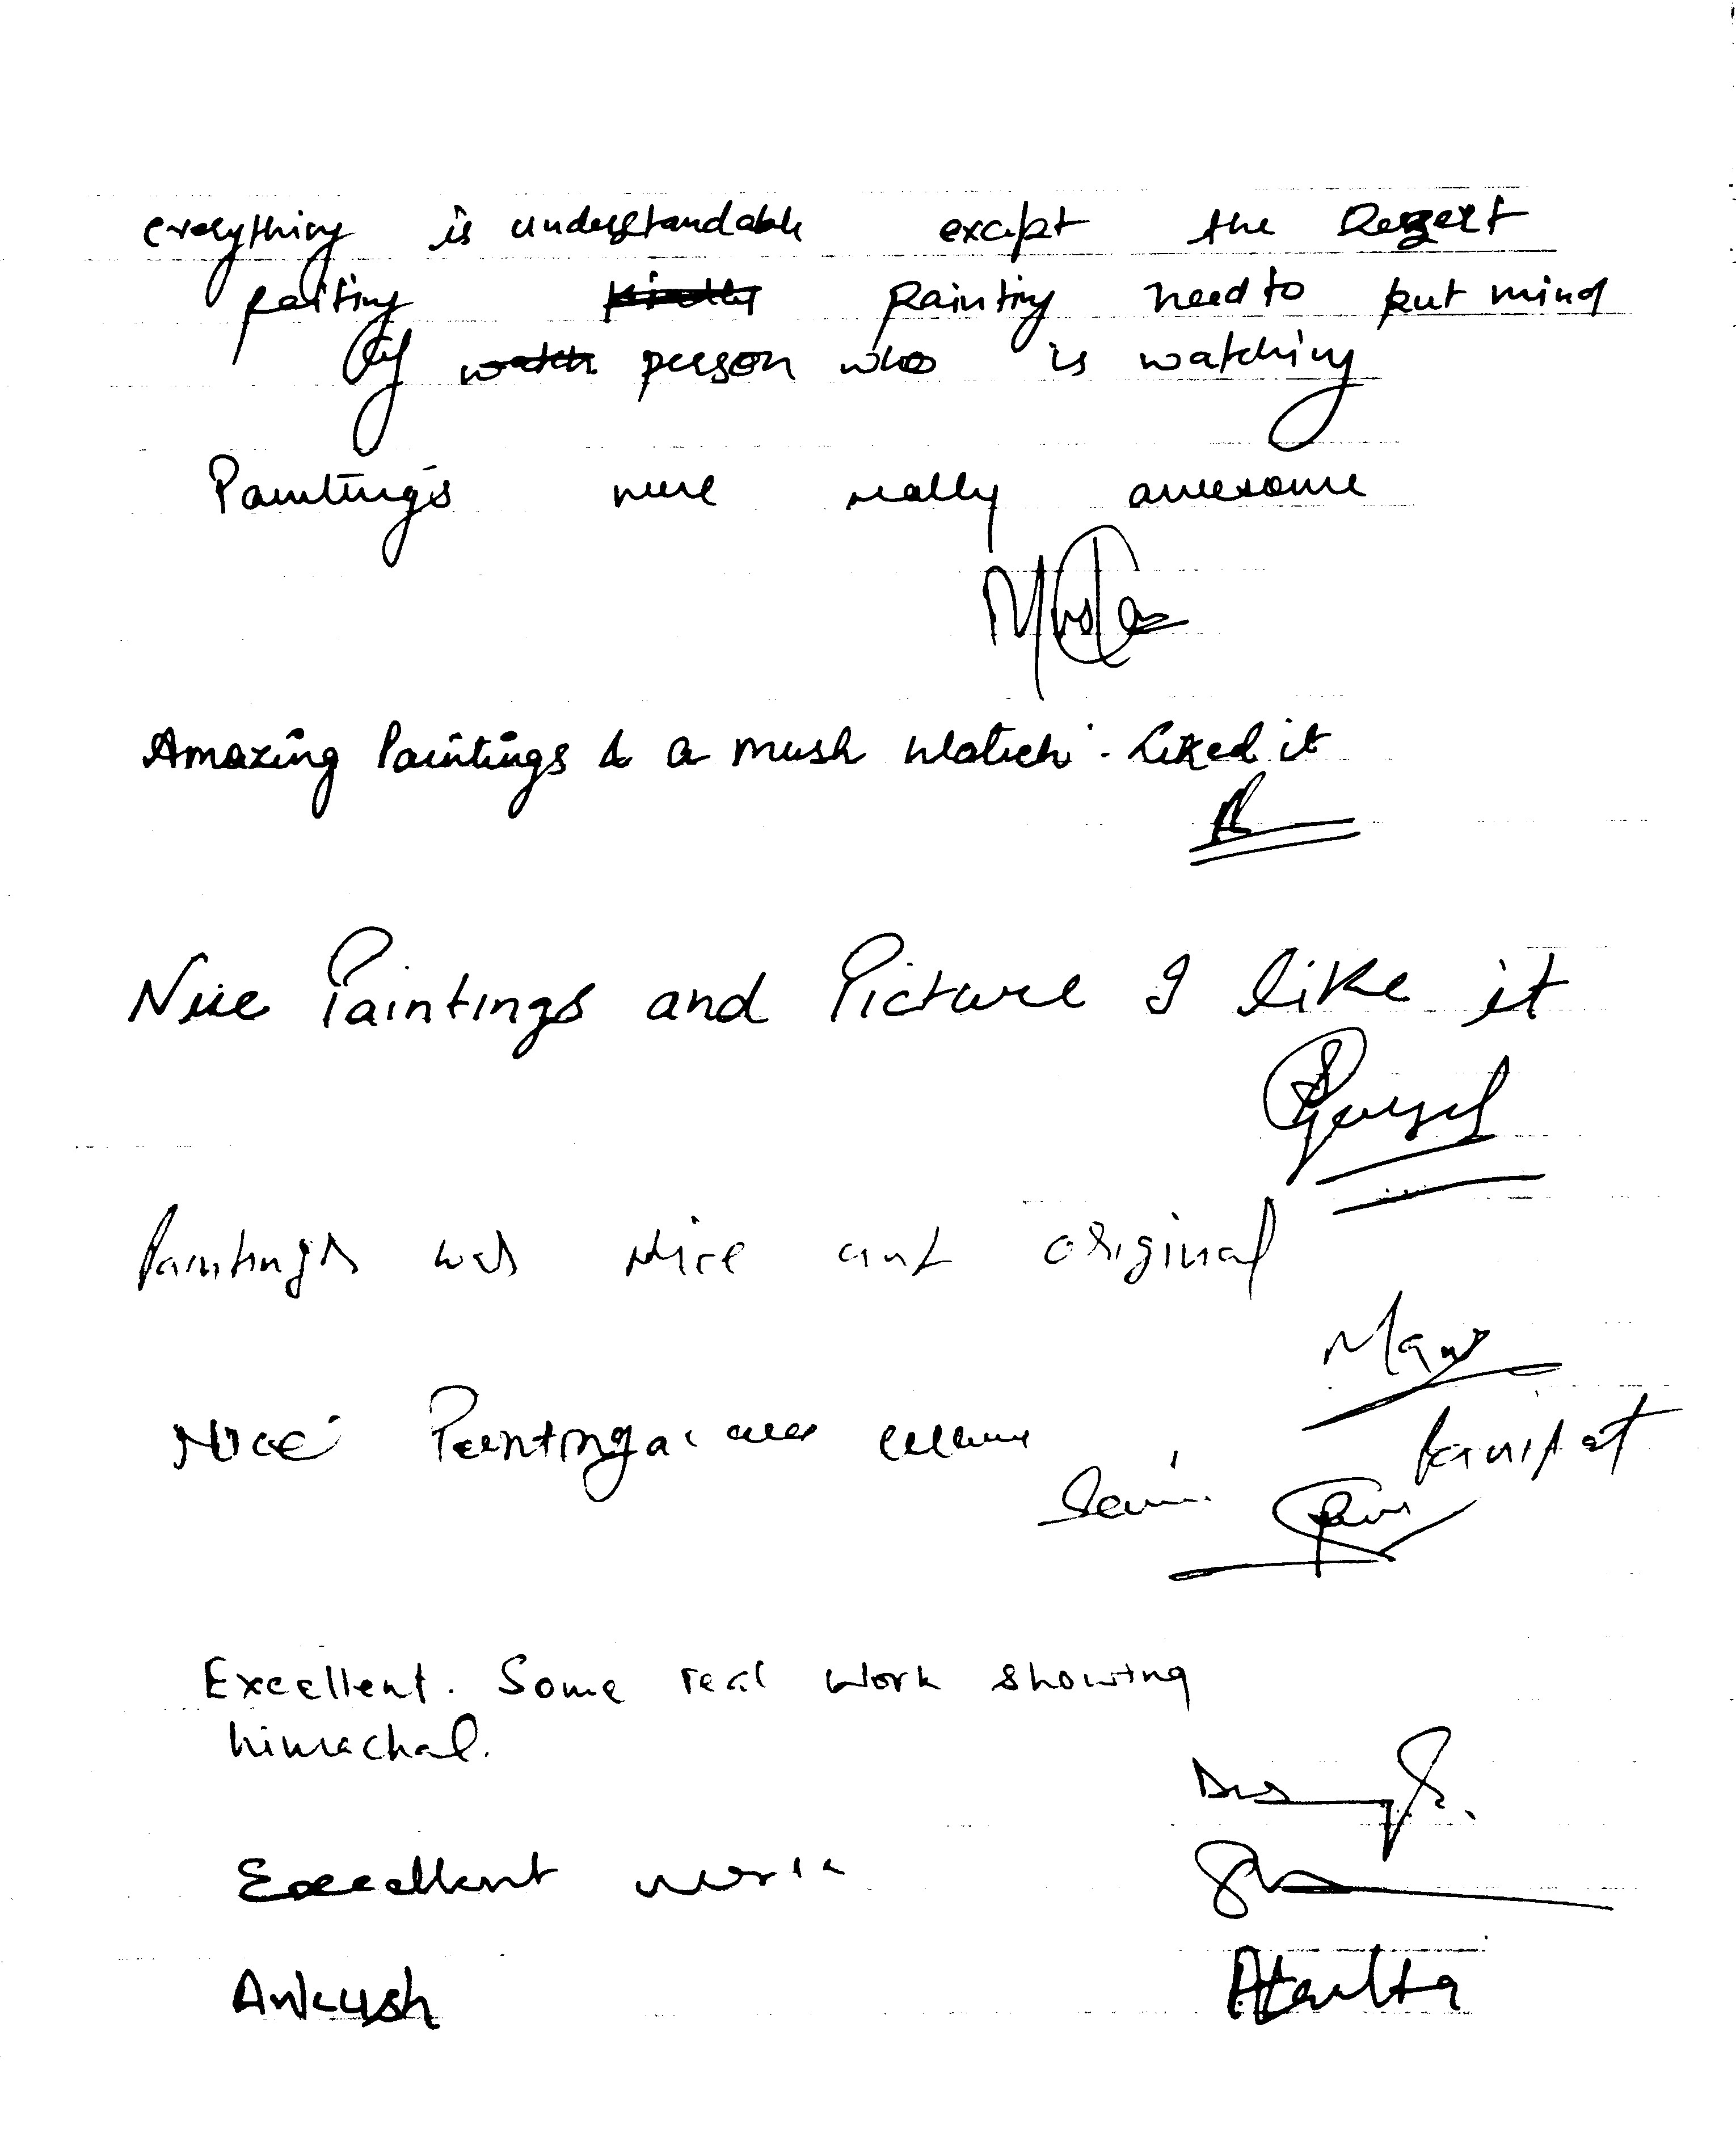 everything is understandable except the Dezert
paiting painting need to put mind
of person who is watching
Paintings were really awesome
Amazing Paintings & a mush watch. Liked it
Nice Paintings and Picture I like it
Paintings was Nice and original
Nice
Excellent. Some real work showing
himachal.
Excellent work
Ankush